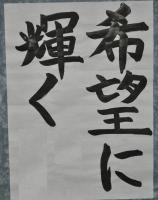 希望に
輝く